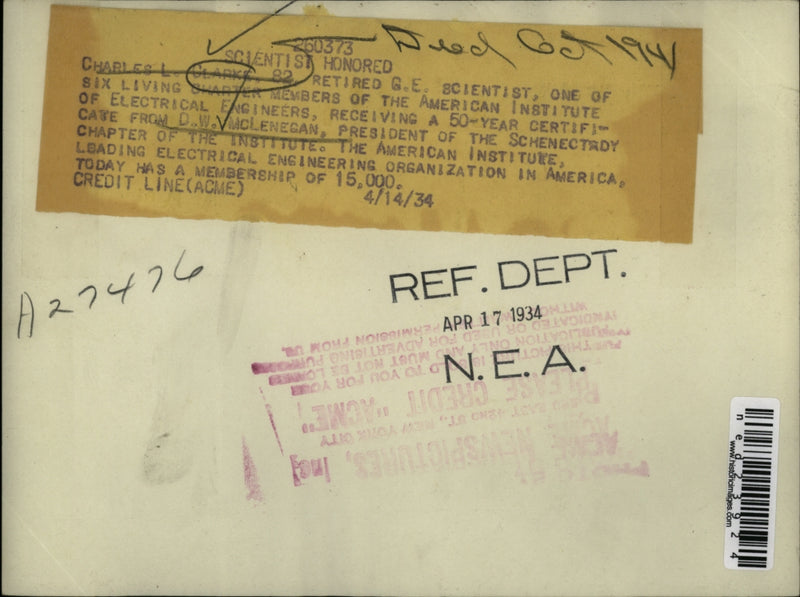 Died Oct 1941
260373
SCIENTIST HONORED
CHARLES L. CLARKE, 82, RETIRED G.E. SCIENTIST, ONE OF
SIX LIVING CHARTER MEMBERS OF THE AMERICAN INSTITUTE
OF ELECTRICAL ENGINEERS, RECEIVING A 50-YEAR CERTIFI-
CATE FROM D.W. MCLENEGAN, PRESIDENT OF THE SCHENECTADY
CHAPTER OF THE INSTITUTE. THE AMERICAN INSTITUTE,
LEADING ELECTRICAL ENGINEERING ORGANIZATION IN AMERICA,
TODAY HAS A MEMBERSHIP OF 15,000.
CREDIT LINE(ACME) 4/14/34
A27476
REF. DEPT.
APR 17 1934
N. E. A.
ACME NEWSPICTURES, Inc
EAST 42ND ST., NEW YORK CITY
PLEASE CREDIT "ACME"
THIS PHOTO IS SOLD TO YOU FOR YOUR
PUBLICATION ONLY AND MUST NOT BE LOANED
SYNDICATED OR USED FOR ADVERTISING PURPOSES
WITHOUT PERMISSION FROM US
ned23924
www.historicimages.com